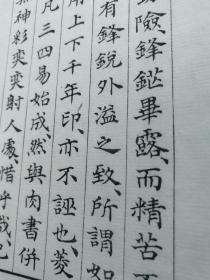 險、鋒鋩畢露、而精苦
有鋒銳外溢之致、所謂如
上下千年印、亦不誣也、菱
凡三四易始成、然與肉書併
神彩奕奕射人處、惜乎